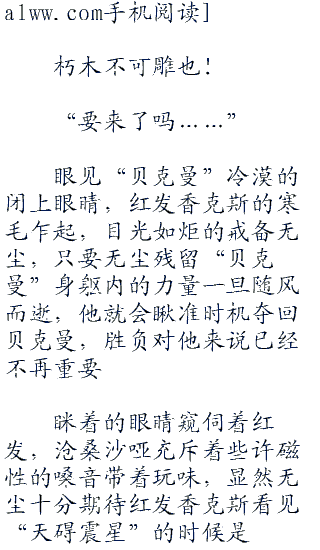 alww.com手机阅读]
朽木不可雕也！
“要来了吗……”
眼见“贝克曼”冷漠的
闭上眼睛，红发香克斯的寒
毛乍起，目光如炬的戒备无
尘，只要无尘残留“贝克
曼”身躯内的力量一旦随风
而逝，他就会瞅准时机夺回
贝克曼，胜负对他来说已经
不再重要
眯着的眼睛窥伺着红
发，沧桑沙哑充斥着些许磁
性的嗓音带着玩味，显然无
尘十分期待红发香克斯看见
“天碍震星”的时候是